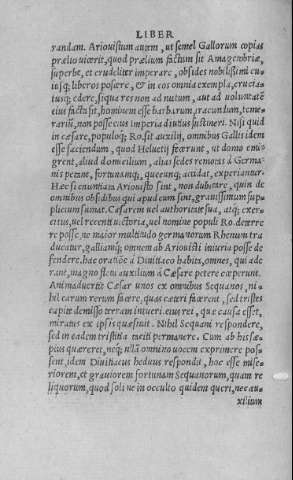 LIBER
randam. Ariouistum autem, ut semel Gallorum copias
prælio uicerit, quod prælium factum sit Amagetobriæ,
superbe, et crudeliter imperare, obsides nobilissimi cu-
iusq; liberos poscere, & in eos omnia exempla, crucia-
tusq; edere, siqua res non ad nutum, aut ad uoluntatẽ
eius facta sit, hominem esse barbarum, iracundum, teme-
rarium, non posse eius imperia diutius sustineri. Nisi quid
in Cæsare, populoq; Ro. sit auxilij, omnibus Gallis idem
esse faciendum, quod Heluetij fecerunt, ut domo emi-
grent, aliud domicilium, alias sedes remotas à Germa-
nis petant, fortunamq;, quæcunq; accidat, experiantur.
Hæc si enuntiata Ariouisto sint, non dubitare, quin de
omnibus obsidibus qui apud eum sint, grauissimum sup-
plicium sumat. Cæsarem uel authoritate sua, atq; exer-
citus, uel recenti uictoria, uel nomine populi Ro. deterre
re posse, ne maior multitudo germanorum Rhenum tra
ducatur, galliamq; omnem ab Ariouisti iniuria posse de
fendere. hac oratiõe à Diuitiaco habita, omnes, qui ade
rant, magno fletu auxilium à Cæsare petere cœperunt.
Animaduertit Cæsar unos ex omnibus Sequanos, ni-
hil earum rerum facere, quas cæteri facerent, sed tristes
capite demisso terram intueri. eius rei, quæ causa esset,
miratus ex ipsis quæsiuit. Nihil Sequani respondere,
sed in eadem tristitia taciti permanere. Cum ab his sæ-
pius quæreret, neq; ullã omnino uocem exprimere pos-
sit, idem Diuitiacus hedus respondit, hoc esse mise-
riorem, et grauiorem fortunam Sequanorum, quam re
liquorum, quod soli ne in occulto quidem queri, nec au-
xilium